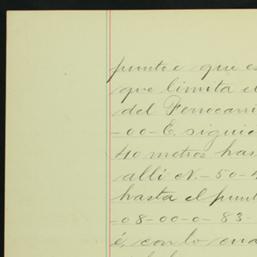 punto e que es
que limita el
del Ferrocarri
-00-E siguie
40 metros has
alli N-50-
hasta el punt
-08-00-0-83-
é, con lo cua